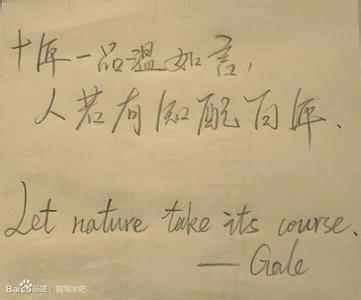 十年一品温如言,
人若有知配百年、
Let nature take its course.
—Gale
Baidu贴吧 | 钢笔字吧